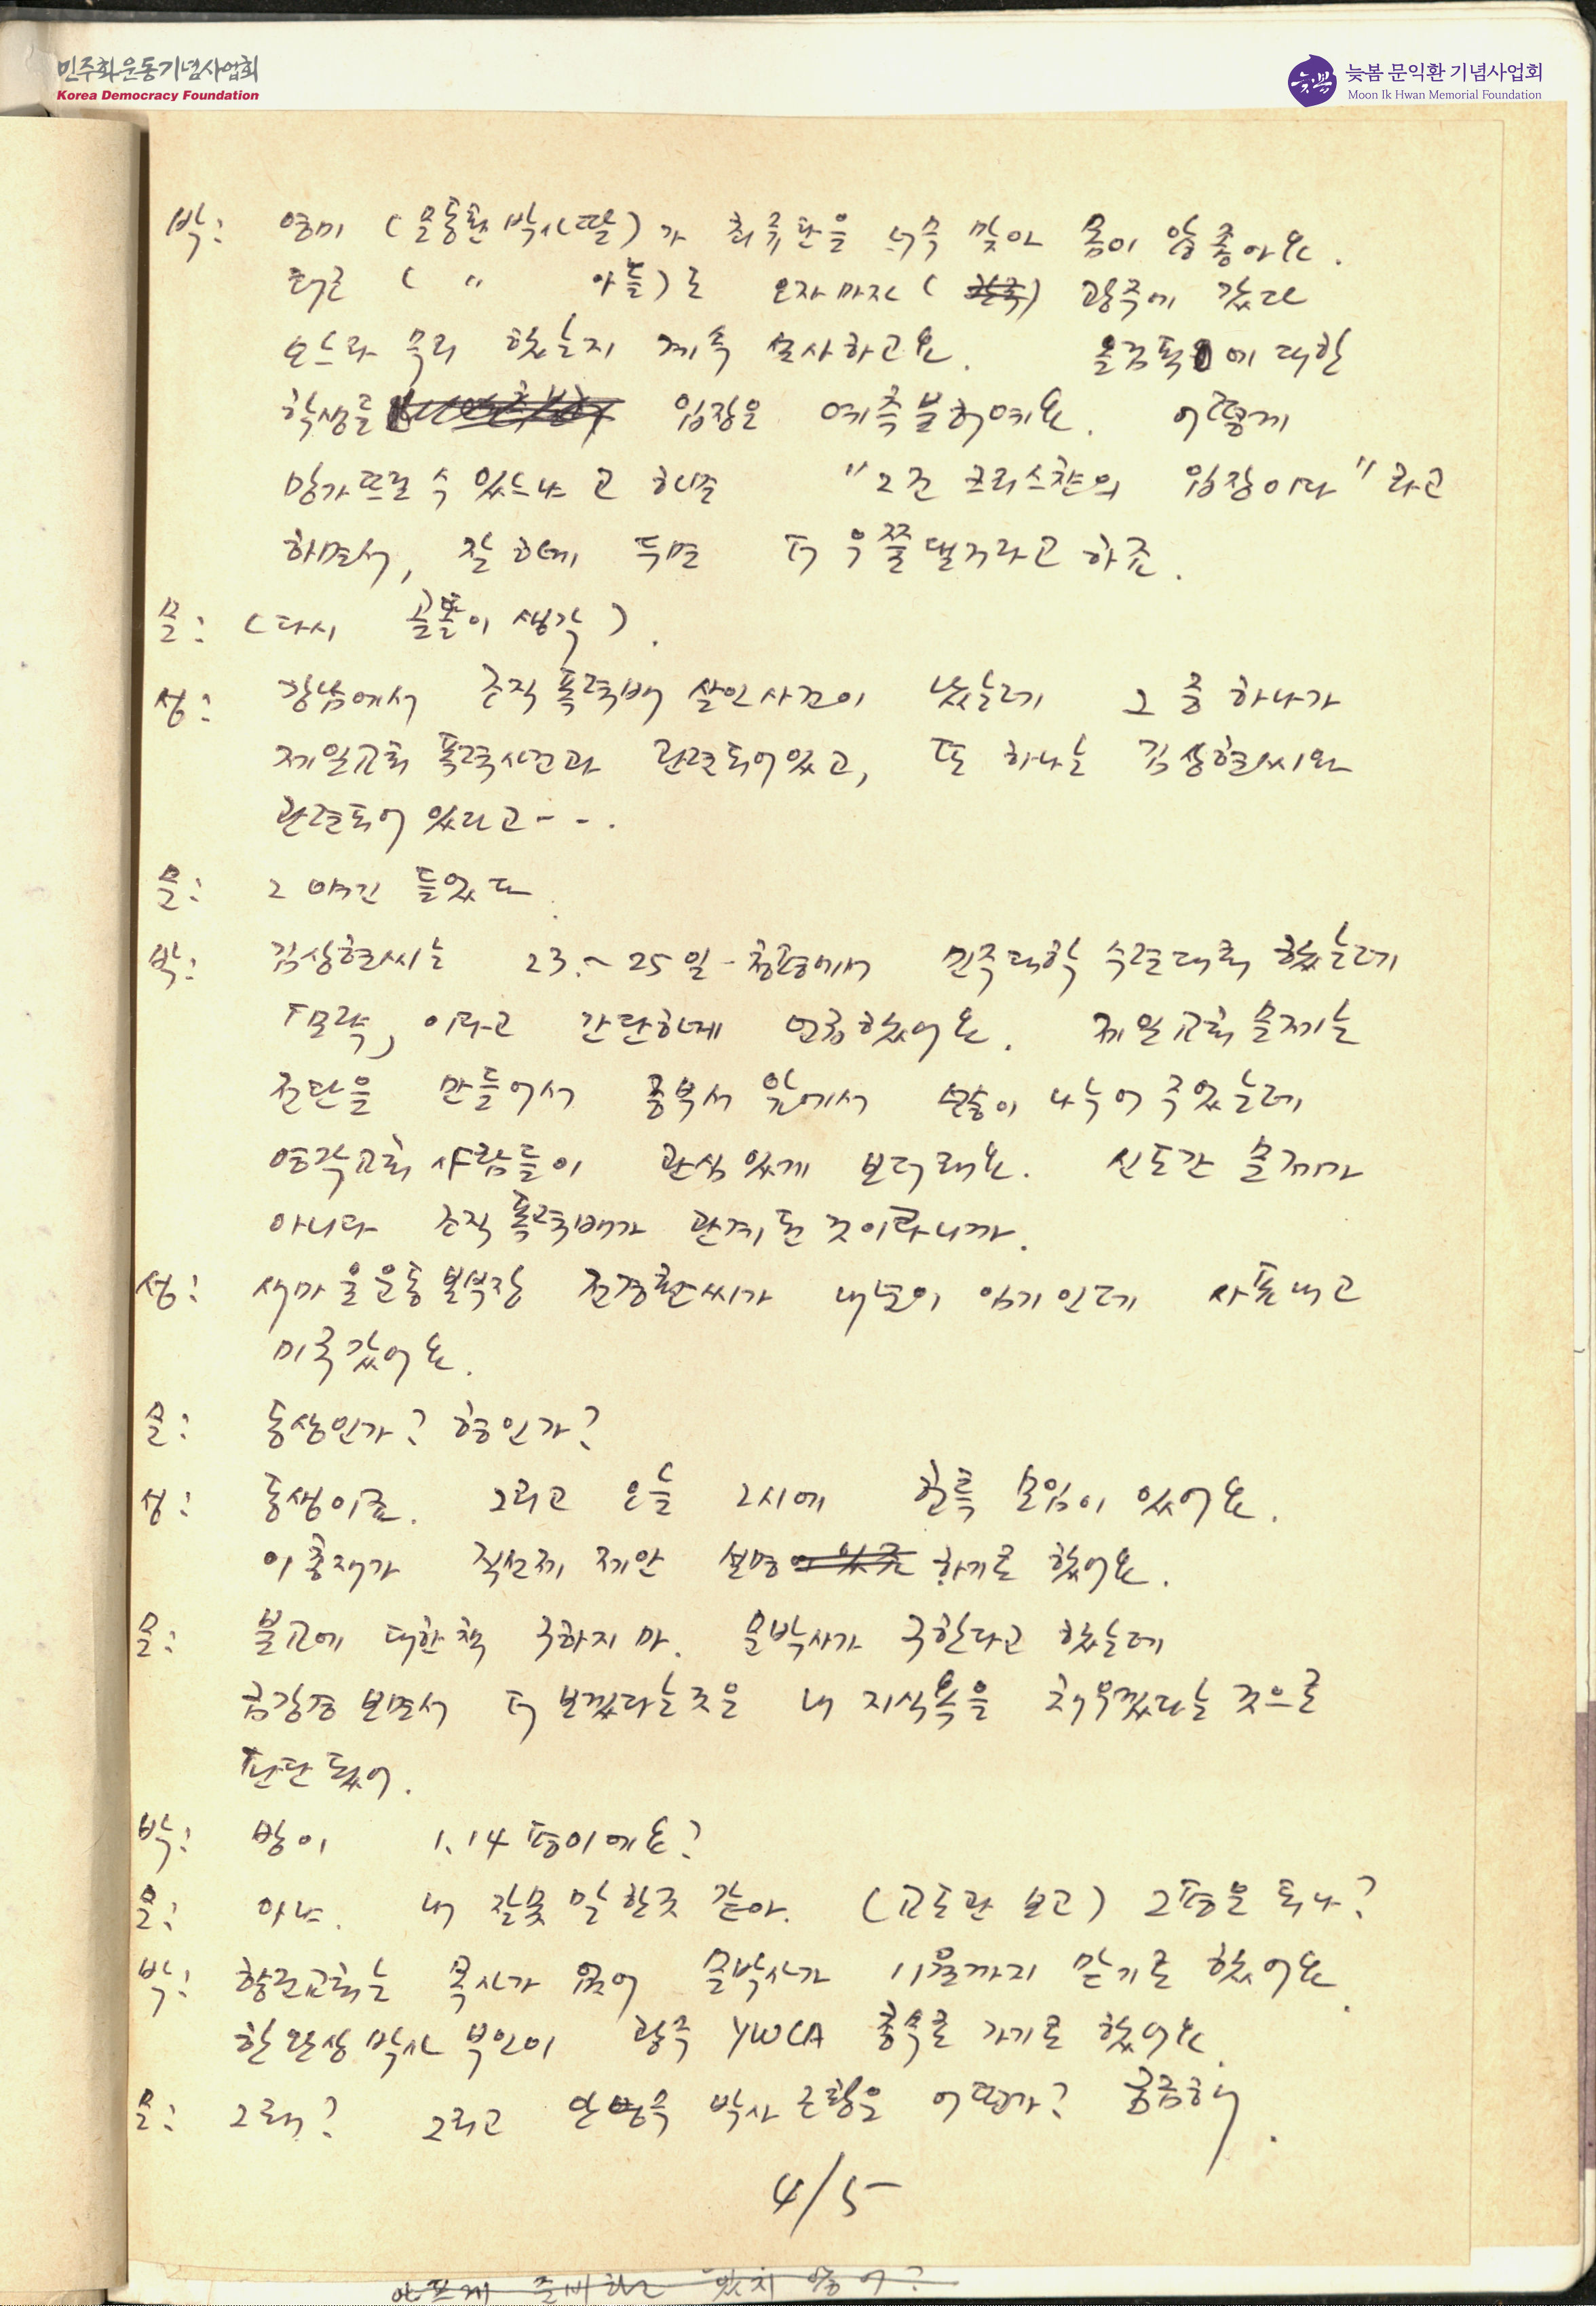 민주화운동기념사업회
Korea Democracy Foundation
늦봄
늦봄 문익환 기념사업회
Moon Ik Hwan Memorial Foundation
박: 영미 (문동환 박사 딸)가 최류탄을 너무 맞아 몸이 안 좋아요.
태근 ( " 아들)도 오자마자 ( ) 광주에 갔다
오느라 무리 했는지 계속 설사하고요. 올림픽에 대한
학생들 입장은 예측불허예요. 어떻게
망가뜨릴 수 있느냐 고 하면 "그건 크리스챤의 입장이다" 라고
하면서, 잘 하게 두면 더 우쭐댈거라고 하죠.
문: (다시 골똘이 생각).
성: 강남에서 조직폭력배 살인사건이 났는데 그 중 하나가
제일교회 폭력사건과 관련되어있고, 또 하나는 김상현씨와
관련되어 있다고 - - .
문: 그 얘긴 들었다.
박: 김상현씨는 23.~25일 - 청평에서 민주대학 수련대회 했는데
「모략」이라고 간단하게 언급했어요. 제일교회 문제는
전단을 만들어서 중부서 앞에서 나누어 주었는데
영락교회 사람들이 관심있게 보더래요. 신도간 문제가
아니다 조직폭력배가 관계된 것이라니까.
성: 새마을운동본부장 전경환씨가 내년이 임기인데 사표내고
미국갔어요.
문: 동생인가? 형인가?
성: 동생이죠. 그리고 오늘 2시에 헌특 모임이 있어요.
이총재가 직선제 제안 설명 하기로 했어요.
문: 불교에 대한책 구하지 마. 문박사가 구한다고 했는데
금강경 보면서 더 보겠다는것은 내 지식욕을 채우겠다는 것으로
판단 됐어.
박: 방이 1.14평이에요?
문: 아냐. 내 잘못 말한것 같아. (교도관 보고) 2평은 되나?
박: 향린교회는 목사가 없어 문박사가 11월까지 맡기로 했어요.
한완상박사 부인이 광주 YWCA 총무로 가기로 했어요.
문: 그래? 그리고 안병무 박사 근황은 어떤가? 궁금해.
4/5
어떻게 준비하고 있지 않어?